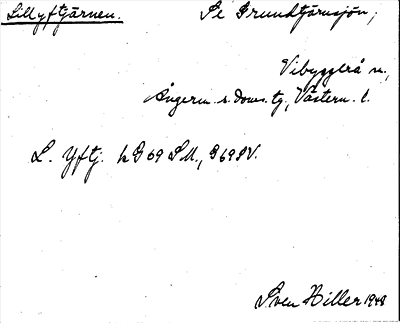 Lillyftjärnen. Se Grundtjärnsjön,
Vibyggerå sn.,
Ångerm. s. doms. tg., Västern. l.
L. Yftj. h G 69 SM., G 69 SV.
Sven Hiller 1948